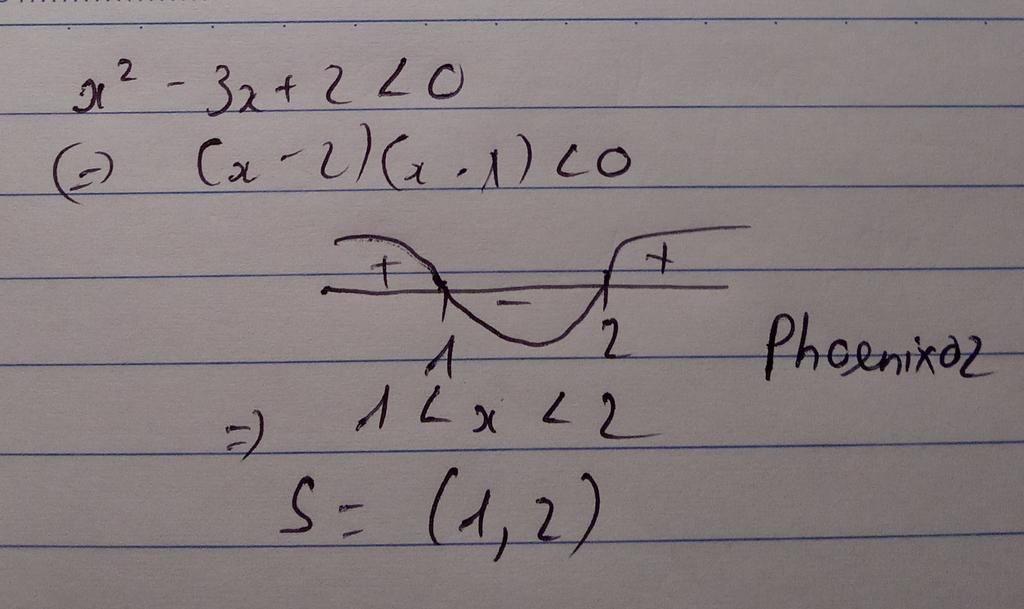 x² - 3x + 2 < 0
(=) (x - 2)(x - 1) < 0
+ - +
1 2
Phoenixoz
=) 1 < x < 2
S = (1, 2)